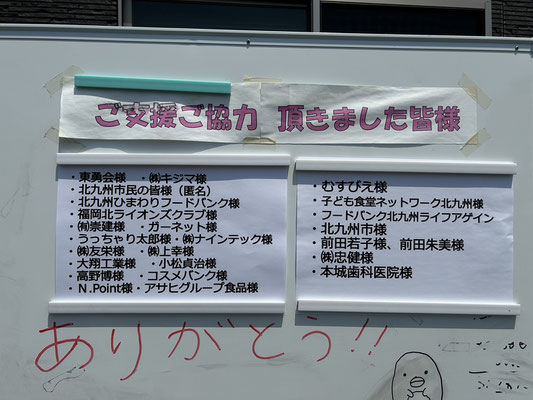 ご支援ご協力 頂きました皆様
・東勇会様 ・㈱キジマ様
・北九州市民の皆様（匿名）
・北九州ひまわりフードバンク様
・福岡北ライオンズクラブ様
・㈲崇建様 ・ガーネット様
・うっちゃり太郎様・㈱ナインテック様
・㈱友栄様 ・㈱上幸様
・大翔工業様 ・小松貞治様
・高野博様 ・コスメバンク様
・Ｎ.Point様・アサヒグループ食品様
・むすびえ様
・子ども食堂ネットワーク北九州様
・フードバンク北九州ライフアゲイン
・北九州市様
・前田若子様、前田朱美様
・㈱忠健様
・本城歯科医院様
ありがとう!!